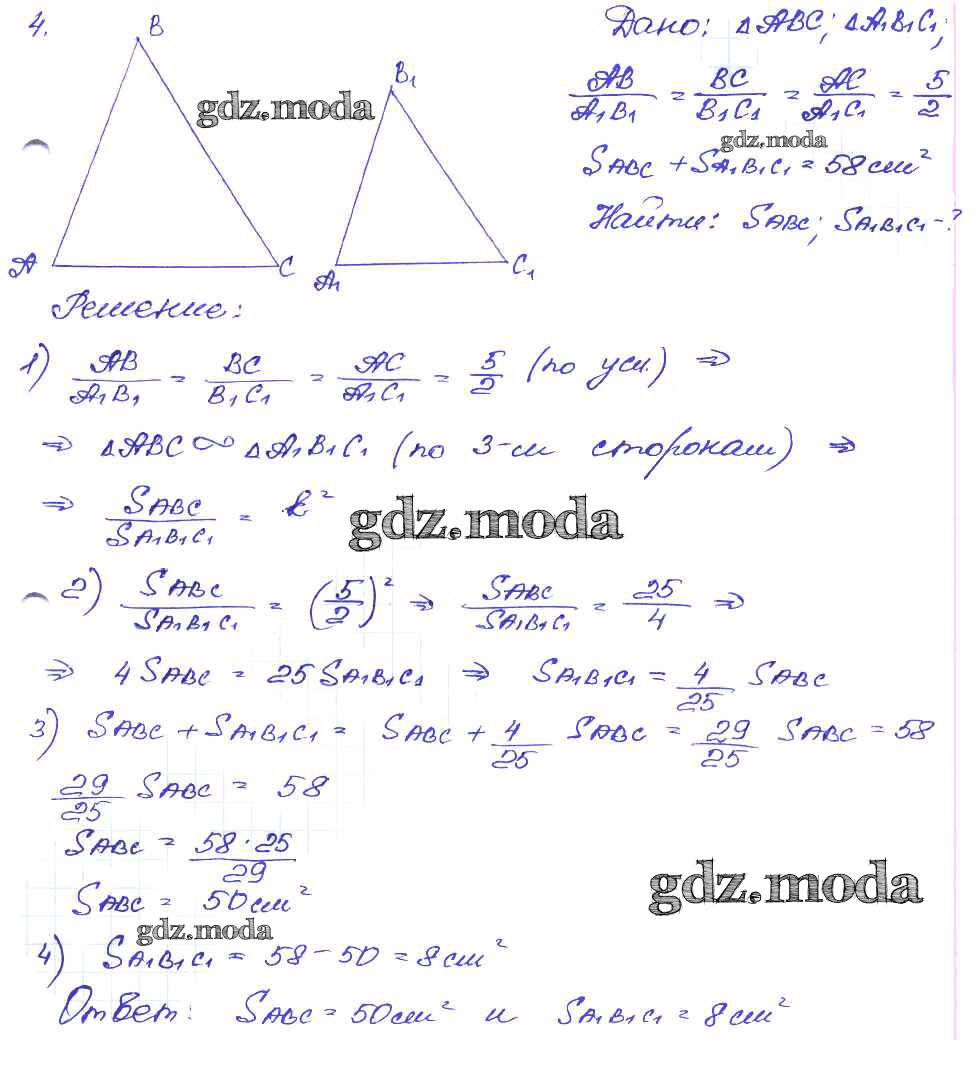 4.
B
B₁
A
C
A₁
C₁
gdz.moda
Дано: △ABC; △A₁B₁C₁;
AB/A₁B₁ = BC/B₁C₁ = AC/A₁C₁ = 5/2
gdz.moda
SABC + SA₁B₁C₁ = 58 см²
Найти: SABC; SA₁B₁C₁ - ?
Решение:
1) AB/A₁B₁ = BC/B₁C₁ = AC/A₁C₁ = 5/2 (по усл.) ⇒
⇒ △ABC ∾ △A₁B₁C₁ (по 3-м сторонам) ⇒
⇒ SABC/SA₁B₁C₁ = k²
gdz.moda
2) SABC/SA₁B₁C₁ = (5/2)² ⇒ SABC/SA₁B₁C₁ = 25/4 ⇒
⇒ 4 SABC = 25 SA₁B₁C₁ ⇒ SA₁B₁C₁ = 4/25 SABC
3) SABC + SA₁B₁C₁ = SABC + 4/25 SABC = 29/25 SABC = 58
29/25 SABC = 58
SABC = 58·25/29
SABC = 50 см²
gdz.moda
gdz.moda
4) SA₁B₁C₁ = 58 - 50 = 8 см²
Ответ: SABC = 50 см² и SA₁B₁C₁ = 8 см²